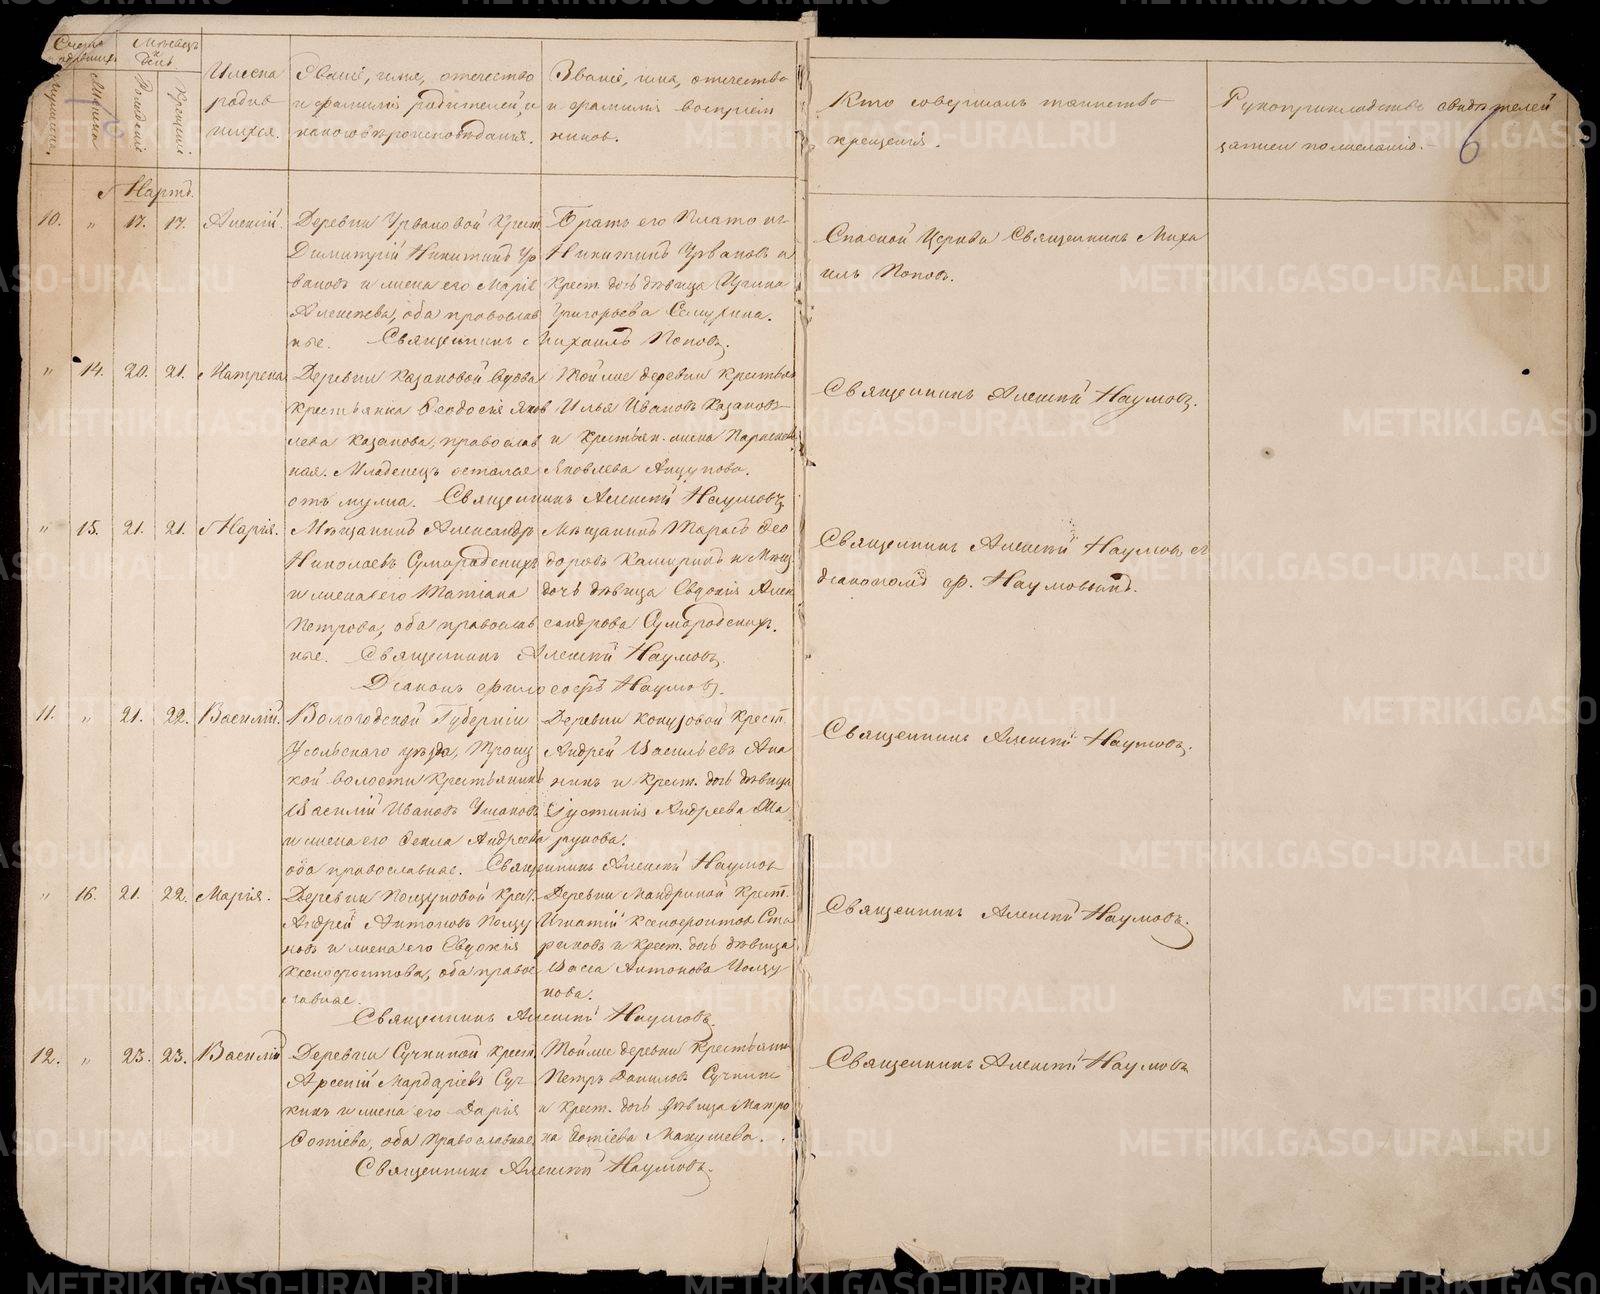 Мѣсяцъ
и
день
Рожденія
Крещенія
Имена
родив
шихся.
Званіе, имя, отчество
и фамилія родителей, и
какого вѣроисповѣданія.
Званіе, имя, отчество
и фамилія воспріем
никовъ.
Кто совершалъ таинство
крещенія.
Рукоприкладство свидѣтелей
записи по желанію.
6
Мартъ.
10. " 17. 17. Алексій.
Деревни Урвановой Крест.
Димитрій Никитинъ Ур
вановъ и жена его Марія
Алексѣева, оба православ
ные. Священникъ Михаилъ Поповъ.
Братъ его Платонъ
Никитинъ Урвановъ и
Крест. дочь дѣвица
Григорьева
Спасской Церкви Священникъ Миха
илъ Поповъ.
" 14. 20. 21. Матрена
Деревни Казаковой вдова
крестьянка Ѳеодосія Яков
лева Казакова, православ
ная. Младенецъ остался
отъ мужа. Священникъ Алексѣй Наумовъ
Той же деревни Крестьян
Илья Ивановъ Казаковъ
и Крестьян. жена Параскев
Яковлева
Священникъ Алексѣй Наумовъ.
" 15. 21. 21. Марія.
Мѣщанинъ Александръ
Николаевъ Сумородскихъ
и жена его Татіана
Петрова, оба православ
ные. Священникъ Алексѣй Наумовъ.
Діаконъ Филосоѳъ Наумовъ.
Мѣщанинъ Тарасъ Ѳео
доровъ и Мѣщ.
дочь дѣвица Евдокія Алек
сандрова Сумородскихъ.
Священникъ Алексѣй Наумовъ съ
діакономъ Ф. Наумовымъ.
11. " 21. 22. Василій.
Вологодской Губерніи
Усольскаго уѣзда, Троиц
кой волости Крестьянинъ
Василій Ивановъ Ушаковъ
и жена его Ѳекла Андреева
оба православные. Священникъ Алексѣй Наумовъ
Деревни Крест.
Андрей Васильевъ Ана
нинъ и Крест. дочь дѣвица
Іустинія Андреева Ма
зунова.
Священникъ Алексѣй Наумовъ.
" 16. 21. 22. Марія.
Деревни Крест.
Андрей Антоновъ
новъ и жена его Евдокія
Ксенофонтова, оба право
славные.
Священникъ Алексѣй Наумовъ.
Деревни Крест.
Игнатій Ксенофонтовъ Ста
риковъ и Крест. дочь дѣвица
Васса Антонова
нова.
Священникъ Алексѣй Наумовъ.
12. " 23. 23. Василій
Деревни Сучкиной Крест.
Арсеній Мардаріевъ Суч
кинъ и жена его Дарія
Ѳотіева, оба православные.
Священникъ Алексѣй Наумовъ.
Той же деревни Крестьянин
Петръ Даниловъ Сучкинъ
и Крест. дочь дѣвица Матро
на Ѳотіева Макушева.
Священникъ Алексѣй Наумовъ
METRIKI.GASO-URAL.RU